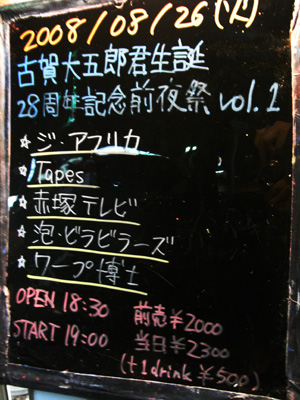 2008/08/26(火)
古賀大五郎君生誕
28周年記念前夜祭 vol.1
☆ジ・アフリカ
☆Tapes
☆赤塚テレビ
☆泡・ビラビラーズ
☆ワープ博士
OPEN 18:30 前売¥2000
START 19:00 当日¥2300
(+1drink ¥500)